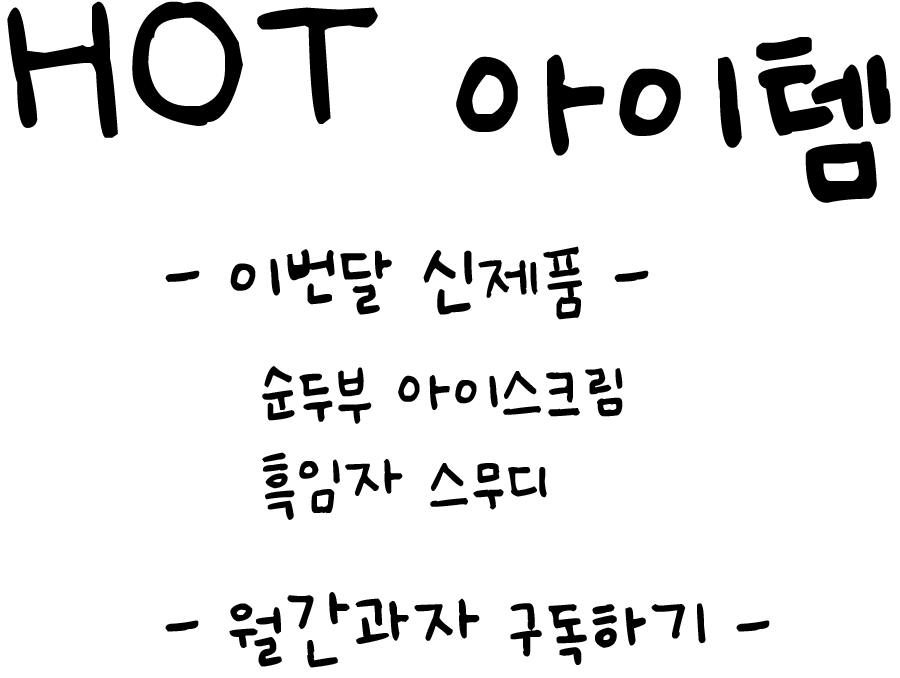 HOT 아이템
- 이번달 신제품 -
순두부 아이스크림
흑임자 스무디
- 월간과자 구독하기 -